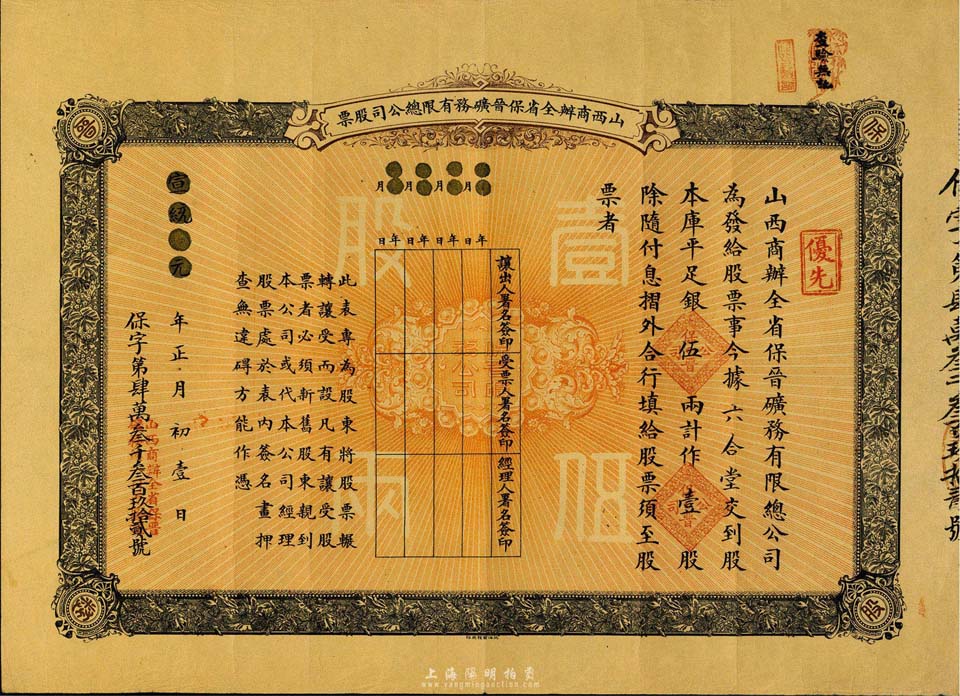 山西商辦全省保晉礦務有限總公司股票
優先
山西商辦全省保晉礦務有限總公司
為發給股票事今據六合堂交到股
本庫平足銀伍兩計作壹股
除隨付息摺外合行填給股票須至股
票者
壹股
伍兩
月 月 月 月
年 年 年 年
日 日 日 日
讓出人署名簽印
受票人署名簽印
經理人署名簽印
此表專為股東將股票輾
轉讓受而設凡有讓受股
票者必須新舊股東親到
本公司或代本公司經理
股票處於表內簽名畫押
查無違碍方能作憑
宣統元年正月初壹日
保字第肆萬叁千叁百玖拾貳號
山西商辦全省保晉
保
股
上海陽明拍賣
www.yangmingauction.com